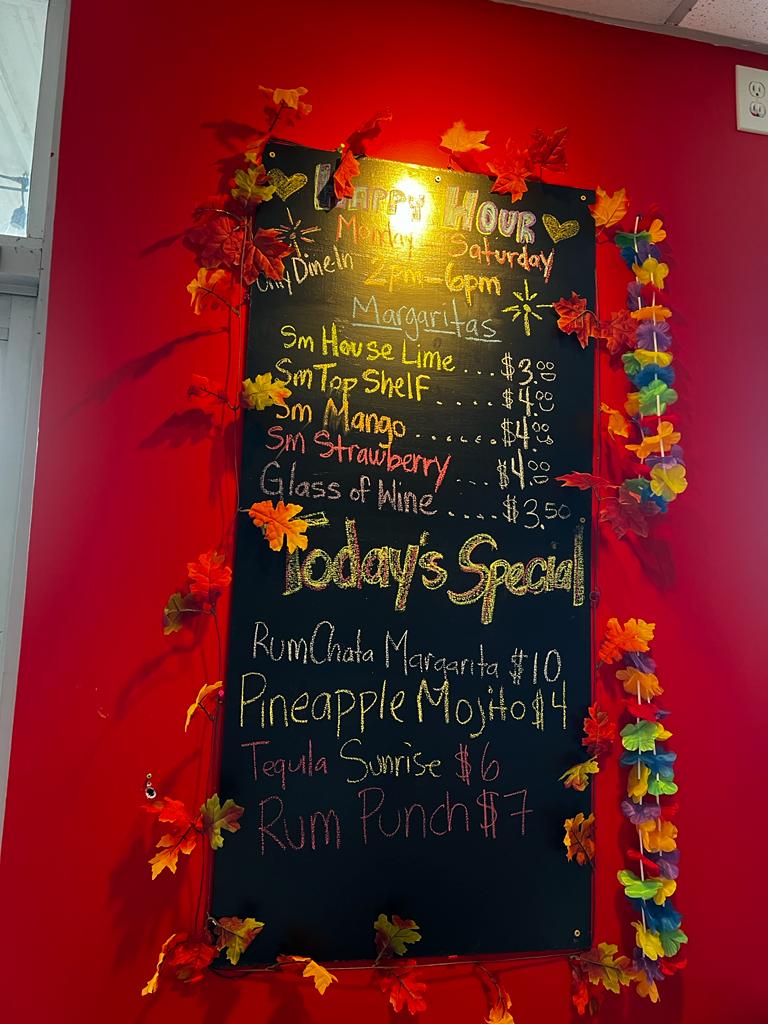 Happy Hour
Monday - Saturday
Only Dine In 2pm-6pm
Margaritas
Sm House Lime .... $3.00
Sm Top Shelf ..... $4.00
Sm Mango ...... $4.00
Sm Strawberry ... $4.00
Glass of Wine .... $3.50
Today's Special
RumChata Margarita $10
Pineapple Mojito $4
Tequla Sunrise $6
Rum Punch $7